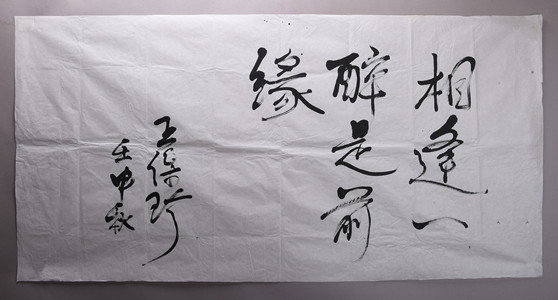 相逢一
醉是前
缘
王保珍
壬申秋